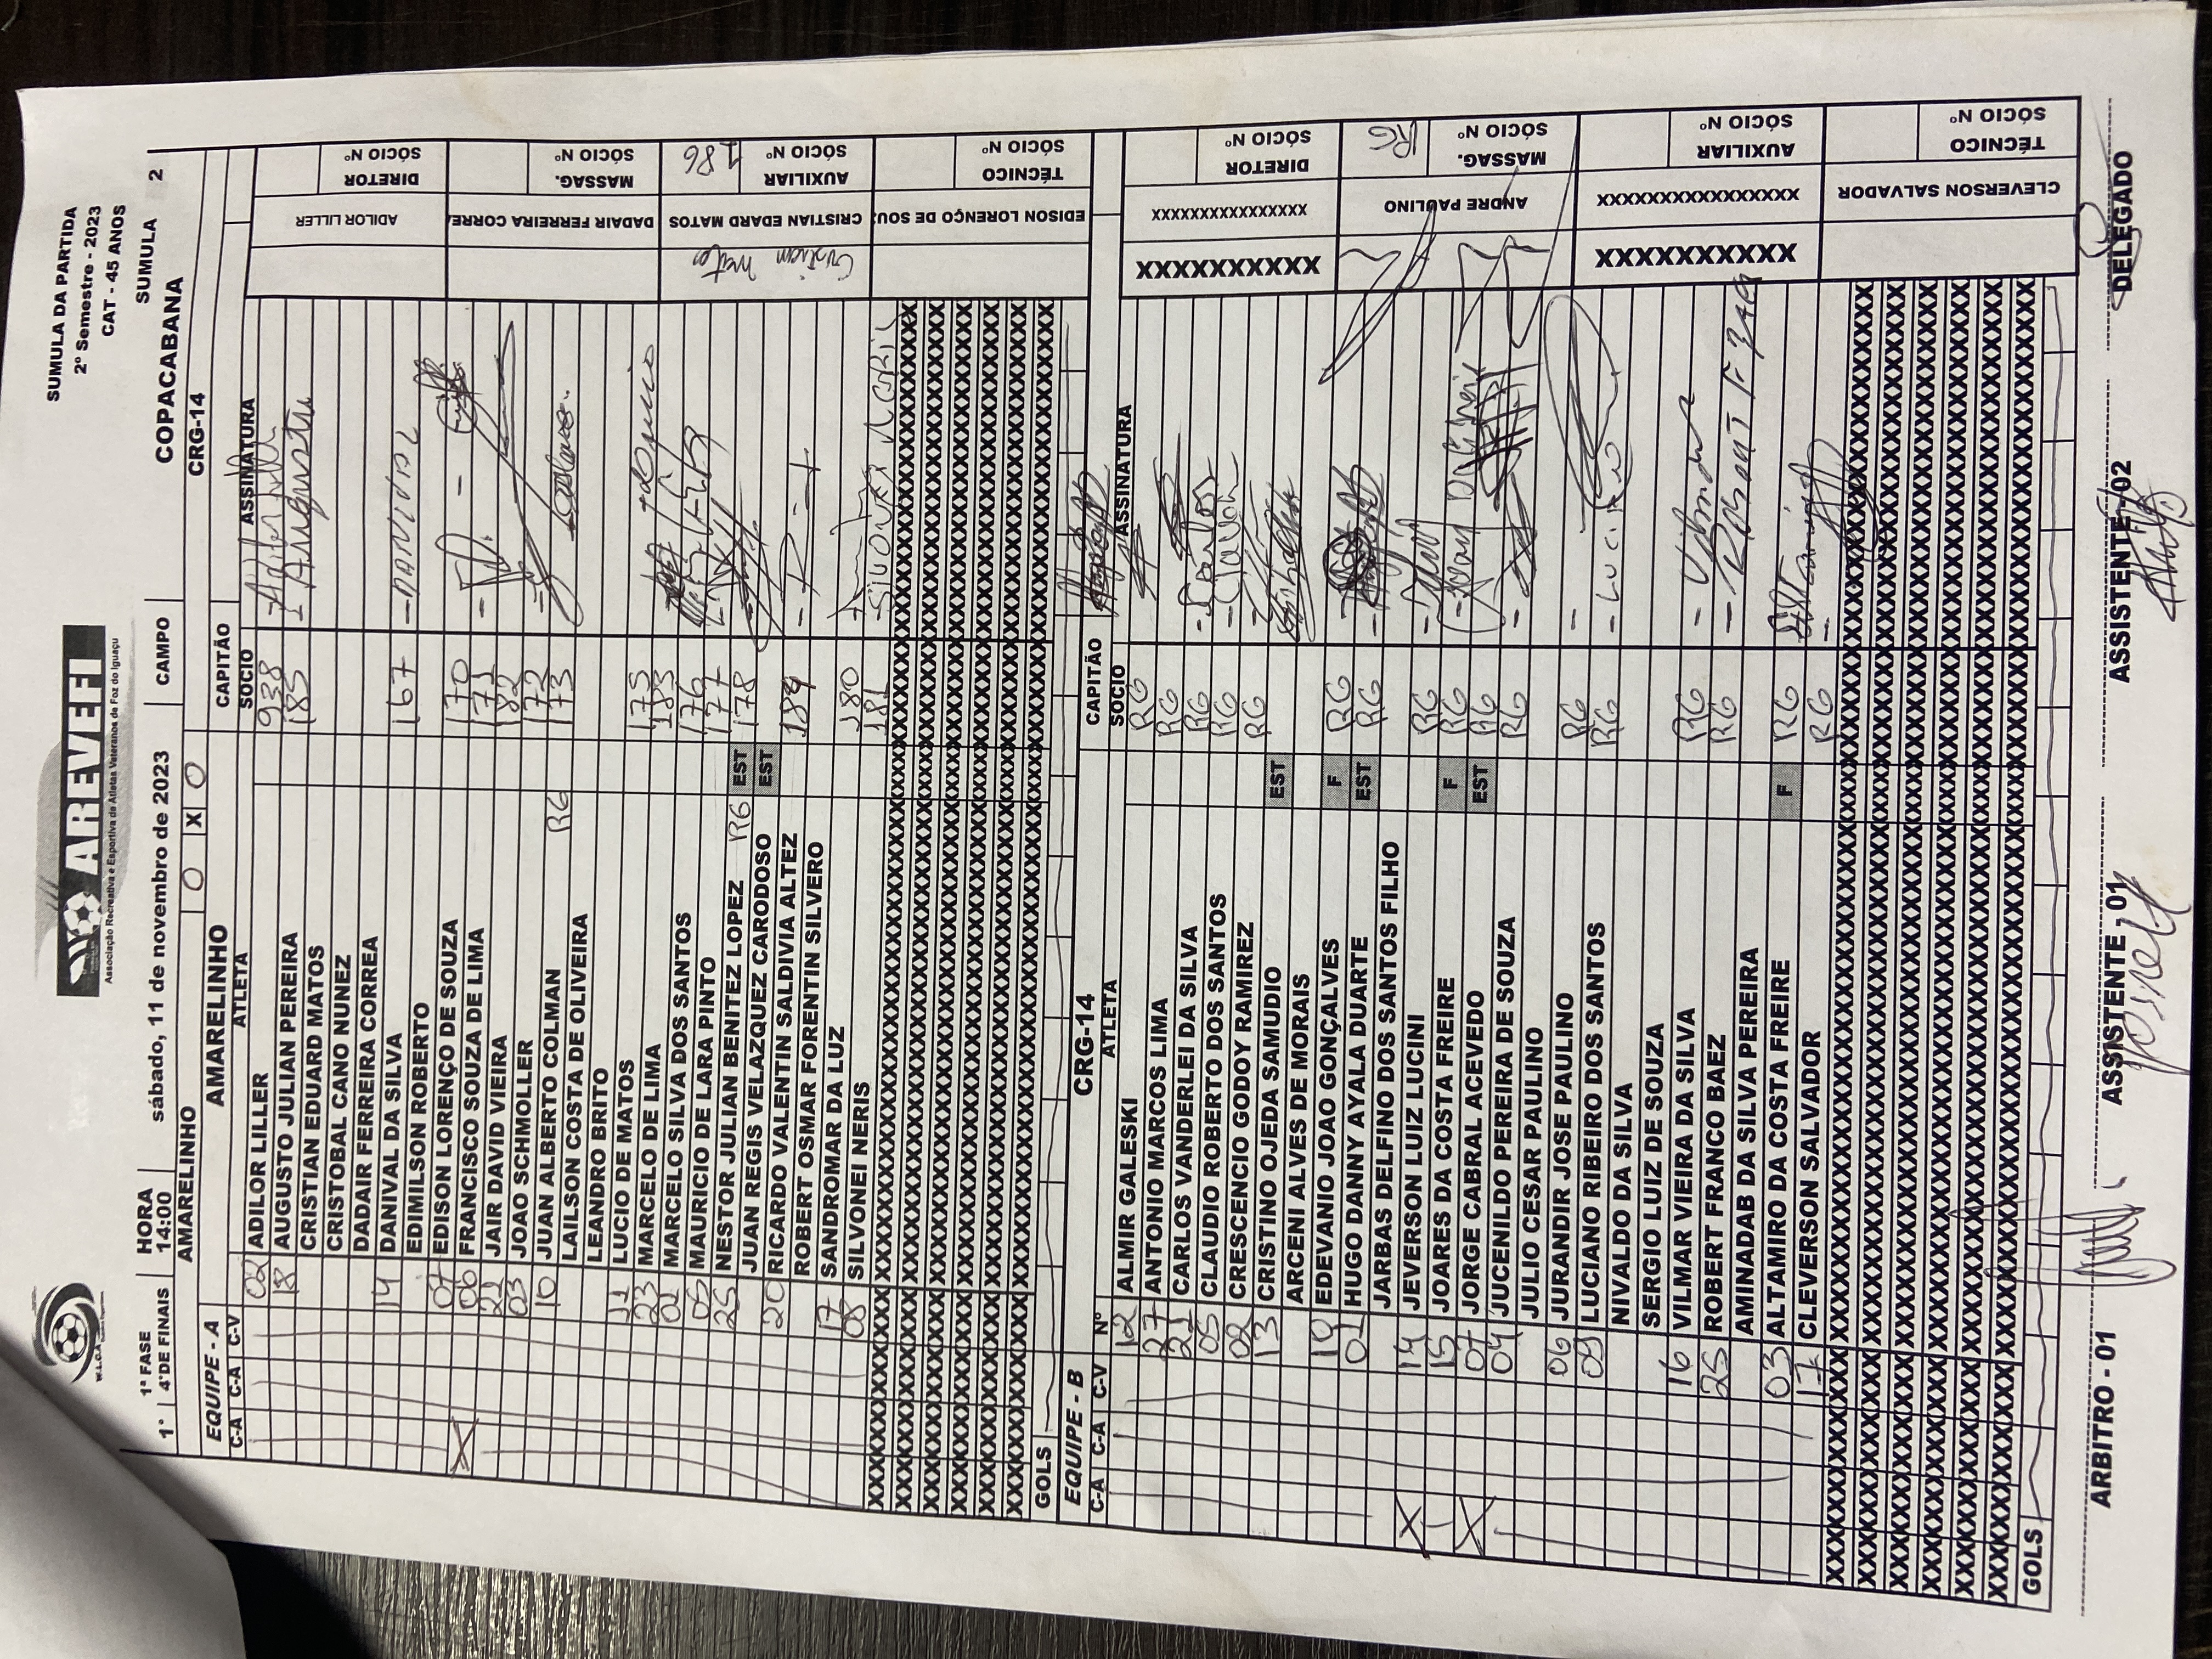 SUMULA DA PARTIDA
2º Semestre - 2023
CAT - 45 ANOS
W.L.C.A
AREVEFI
Associação Recreativa e Esportiva de Atletas Veteranos de Foz do Iguaçu
1ª FASE HORA sábado, 11 de novembro de 2023 CAMPO SUMULA 2
1º 4ªDE FINAIS 14:00 COPACABANA
AMARELINHO 0 X 0 CRG-14
EQUIPE - A AMARELINHO CAPITÃO
C-A C-A C-V ATLETA SOCIO ASSINATURA
02 ADILOR LILLER 938
18 AUGUSTO JULIAN PEREIRA 185 Augusto
CRISTIAN EDUARD MATOS
CRISTOBAL CANO NUNEZ
DADAIR FERREIRA CORREA
14 DANIVAL DA SILVA 167 DANIVAL
EDIMILSON ROBERTO
07 EDISON LORENÇO DE SOUZA 170
X 06 FRANCISCO SOUZA DE LIMA 171
22 JAIR DAVID VIEIRA 182
03 JOAO SCHMOLLER 172
10 JUAN ALBERTO COLMAN RG 173
LAILSON COSTA DE OLIVEIRA
LEANDRO BRITO
11 LUCIO DE MATOS 175
23 MARCELO DE LIMA 183
01 MARCELO SILVA DOS SANTOS 176
05 MAURICIO DE LARA PINTO 177
25 NESTOR JULIAN BENITEZ LOPEZ RG EST 178
JUAN REGIS VELAZQUEZ CARODOSO EST
20 RICARDO VALENTIN SALDIVIA ALTEZ 184
ROBERT OSMAR FORENTIN SILVERO
17 SANDROMAR DA LUZ 180
08 SILVONEI NERIS 181 SILVONEI NERIS
GOLS
ADILOR LILLER DIRETOR SÓCIO Nº
DADAIR FERREIRA CORREA MASSAG. SÓCIO Nº
Cristian Matos CRISTIAN EDARD MATOS AUXILIAR SÓCIO Nº 186
EDISON LORENÇO DE SOU TÉCNICO SÓCIO Nº
EQUIPE - B CRG-14 CAPITÃO
C-A C-A C-V Nº ATLETA SOCIO ASSINATURA
12 ALMIR GALESKI RG
27 ANTONIO MARCOS LIMA RG
21 CARLOS VANDERLEI DA SILVA RG Carlos
05 CLAUDIO ROBERTO DOS SANTOS RG
02 CRESCENCIO GODOY RAMIREZ RG
13 CRISTINO OJEDA SAMUDIO EST
ARCENI ALVES DE MORAIS
19 EDEVANIO JOAO GONÇALVES F RG
01 HUGO DANNY AYALA DUARTE EST RG
JARBAS DELFINO DOS SANTOS FILHO
X 14 JEVERSON LUIZ LUCINI RG
15 JOARES DA COSTA FREIRE F RG
X 07 JORGE CABRAL ACEVEDO EST RG
04 JUCENILDO PEREIRA DE SOUZA RG
JULIO CESAR PAULINO
06 JURANDIR JOSE PAULINO RG
09 LUCIANO RIBEIRO DOS SANTOS RG LUCIANO
NIVALDO DA SILVA
SERGIO LUIZ DE SOUZA
16 VILMAR VIEIRA DA SILVA RG Vilmar
25 ROBERT FRANCO BAEZ RG
AMINADAB DA SILVA PEREIRA
03 ALTAMIRO DA COSTA FREIRE F RG
17 CLEVERSON SALVADOR RG
GOLS
XXXXXXXXXX XXXXXXXXXXXXXXXX DIRETOR SÓCIO Nº
ANDRE PAULINO MASSAG. SÓCIO Nº RG
XXXXXXXXXX XXXXXXXXXXXXXXXX AUXILIAR SÓCIO Nº
CLEVERSON SALVADOR TÉCNICO SÓCIO Nº
ARBITRO - 01 ASSISTENTE, 01 ASSISTENTE, 02 DELEGADO